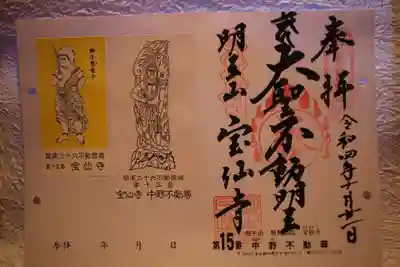 奉拝
令和四年十月廿一日
大聖不動明王
明王山 宝仙寺
第15番 中野不動尊
関東三十六不動霊場
宝仙寺
関東三十六不動霊場
第十五番
宝仙寺 中野不動尊
年 月 日